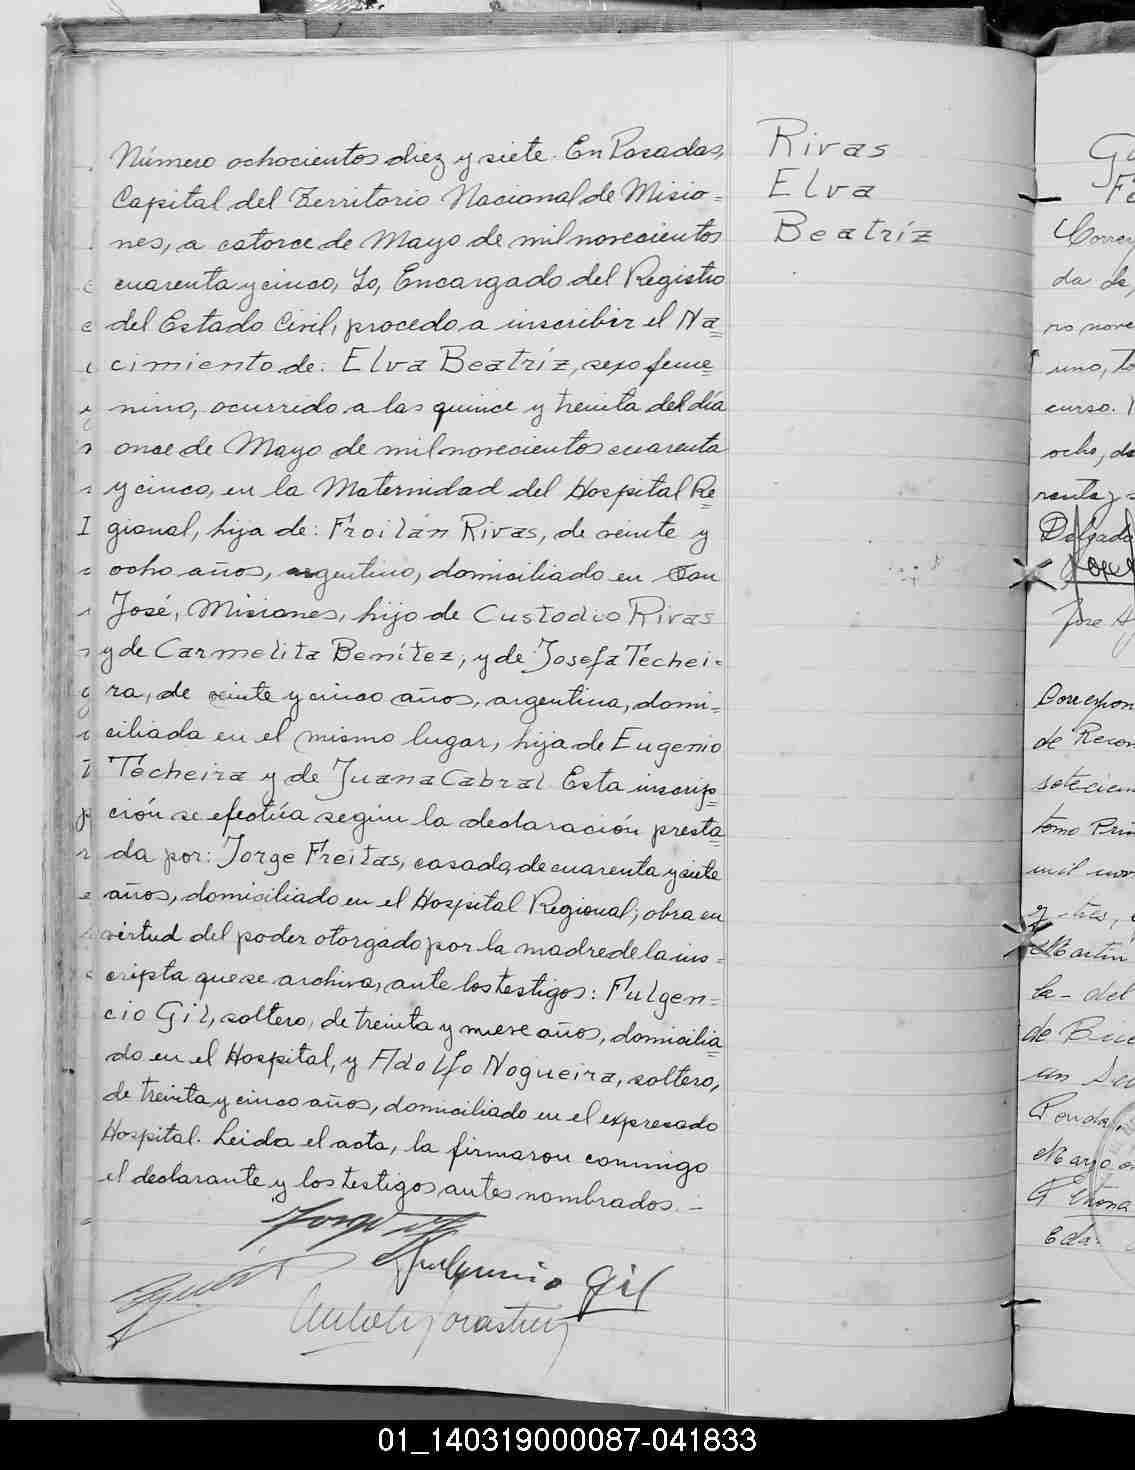 Número ochocientos diez y siete. En Posadas,
Capital del Territorio Nacional de Misio=
nes, a catorce de Mayo de mil novecientos
cuarenta y cinco, Yo, Encargado del Registro
del Estado Civil, procedo a inscribir el Na=
cimiento de: Elva Beatríz, sexo feme=
nino, ocurrido a las quince y treinta del día
once de Mayo de mil novecientos cuarenta
y cinco, en la Maternidad del Hospital Re=
gional, hija de: Froilán Rivas, de veinte y
ocho años, argentino, domiciliado en San
José, Misiones, hijo de Custodio Rivas
y de Carmelita Benítez, y de Josefa Techei=
ra, de veinte y cinco años, argentina, domi=
ciliada en el mismo lugar, hija de Eugenio
Techeira y de Juana Cabral. Esta inscrip=
ción se efectúa según la declaración presta=
da por: Jorge Freitas, casado, de cuarenta y siete
años, domiciliado en el Hospital Regional; obra en
virtud del poder otorgado por la madre de la ins=
cripta que se archiva, ante los testigos: Fulgen=
cio Gil, soltero, de treinta y nueve años, domicilia=
do en el Hospital, y Adolfo Nogueira, soltero,
de treinta y cinco años, domiciliado en el expresado
Hospital. Leida el acta, la firmaron conmigo
el declarante y los testigos antes nombrados. —
Fulgencio Gil
Rivas
Elva
Beatríz
da de,
uno, to
curso.
ocho, de
Delgado
José
de Recon
tomo Pri
mil nov
y tres,
Martin
la - del
de
un
Marzo
Eda.
01_140319000087-041833